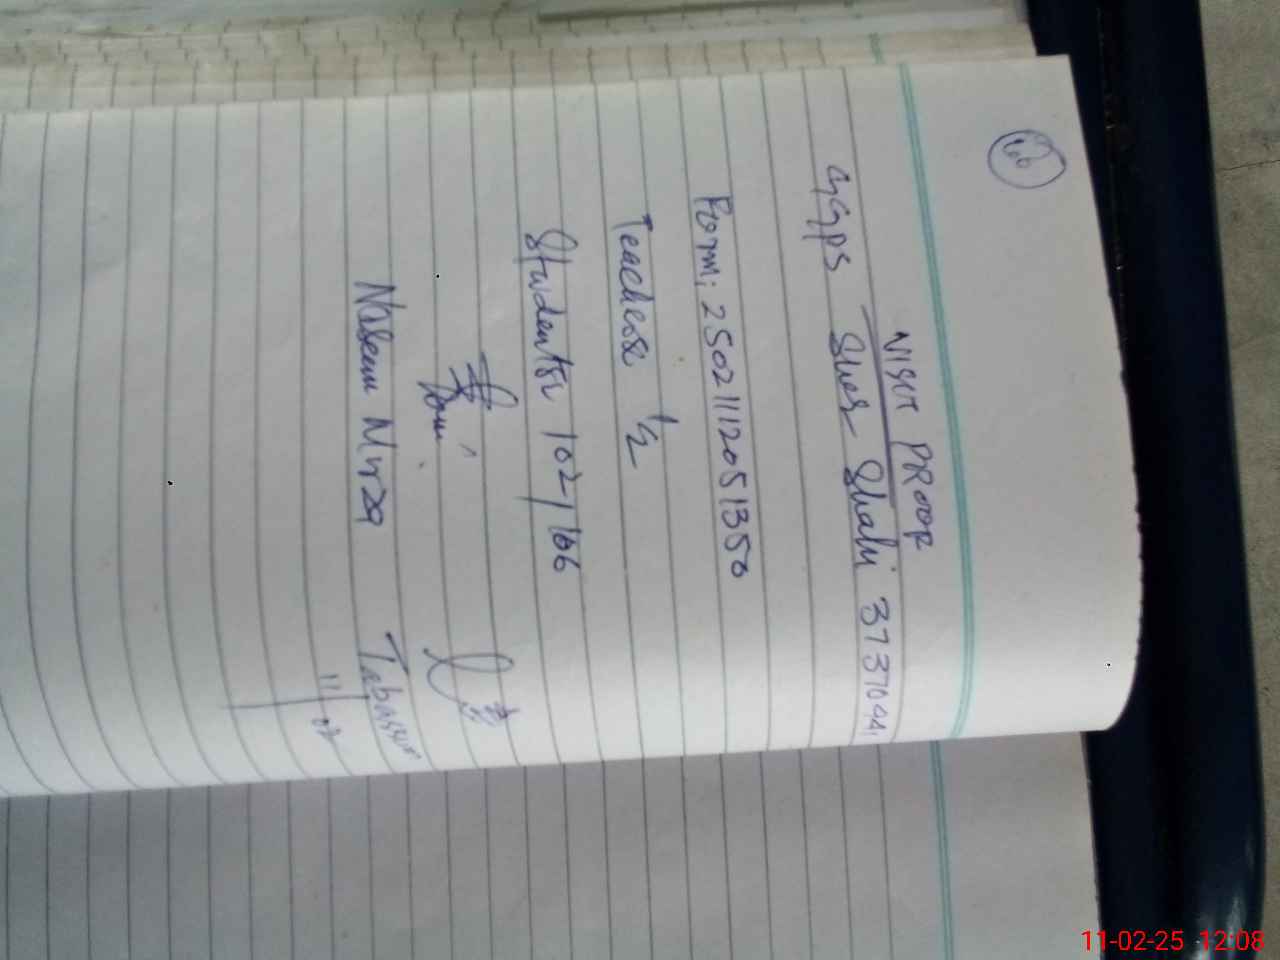 VISIT PROOF
GGPS Sher Shahi 3737044
Form: 25021112051350
Teachers: 1/2
Students: 102/166
Naseem Mirza Tabassum
11/02
11-02-25 12:08